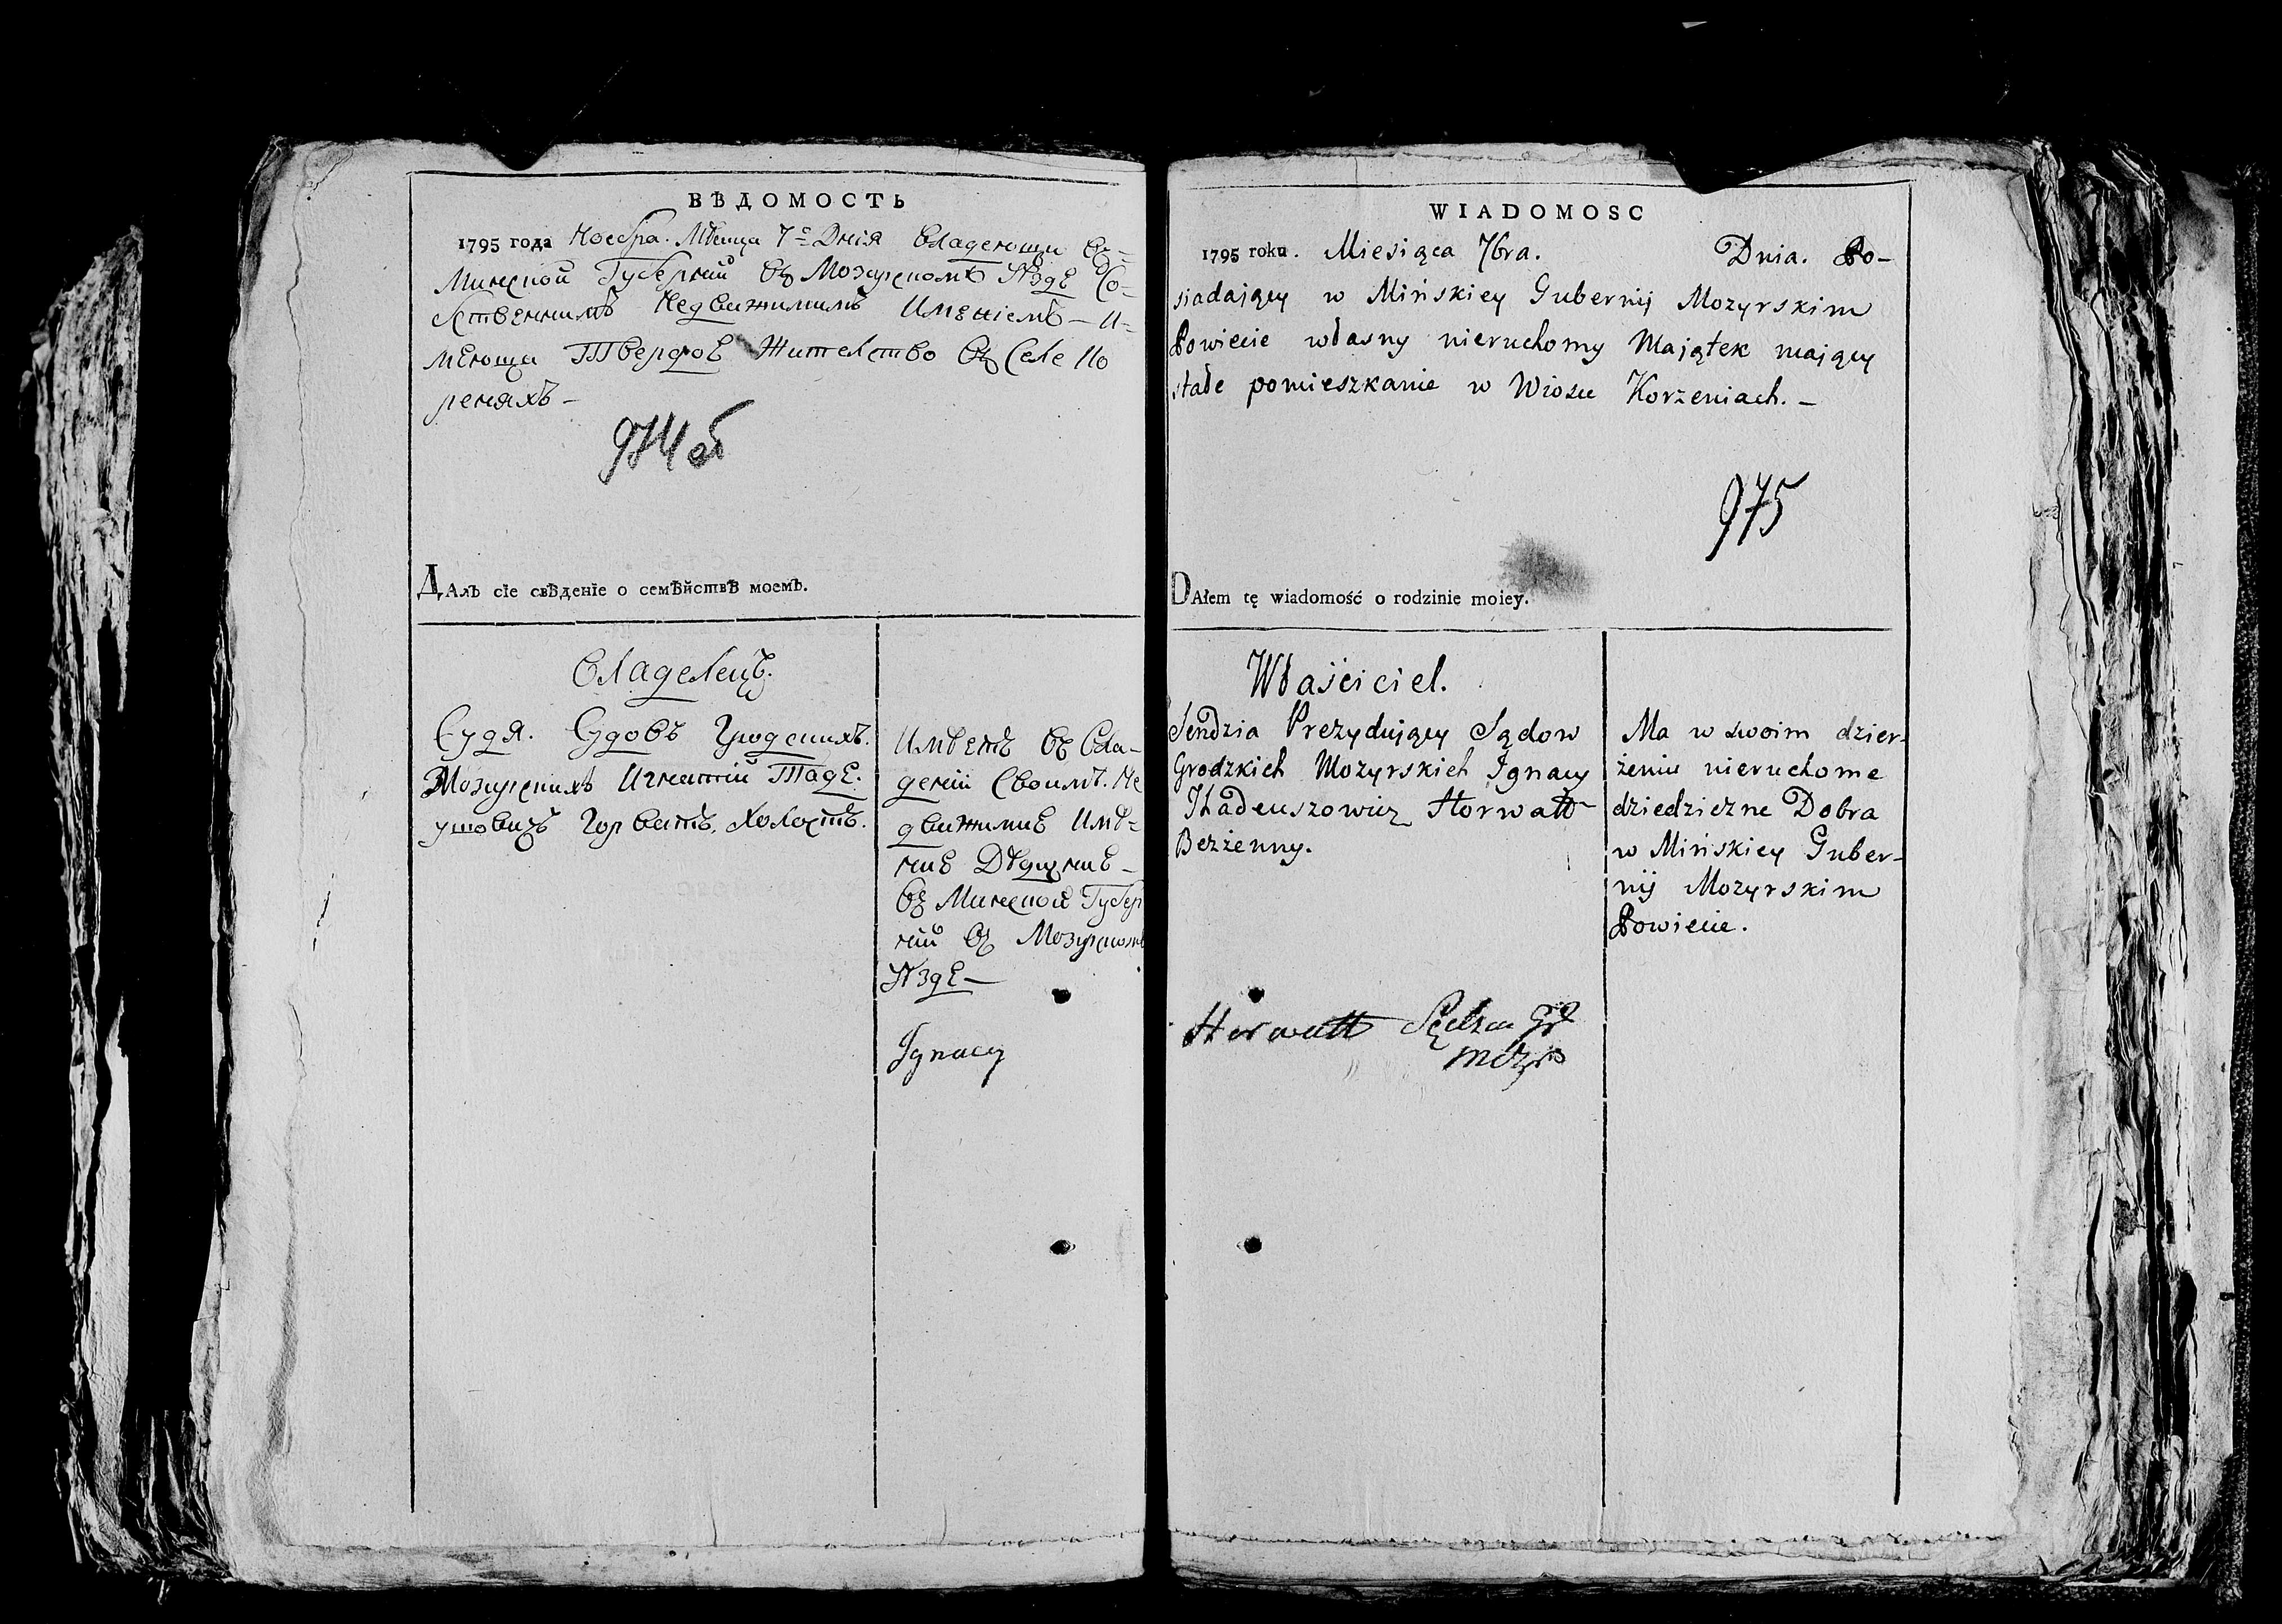 ВѢДОМОСТЬ
1795 года Ноебра. Мѣсица 7го Днія Владеющи въ
Минской Губерніи въ Мозырскомъ Уѣзде Со-
бственнимъ Недвижимимъ Имѣніемъ – И-
меюща Твердое Жителство въ Селе Ко
реняхъ –
974 об
Далъ сіе свѣденіе о семѣйствѣ моемъ.
Владелецъ.
Судя. Судовъ Гродскихъ.
Мозырскихъ Игнатій Таде-
ушовичъ Горватъ. Холостъ.
Имѣетъ въ Вла-
деніи Своимъ. Не
движимие Имѣ-
ние Дѣдизние –
въ Минской Губер
ніи въ Мозырскомъ
Уѣзде –
Ignacy
WIADOMOSC
1795 roku. Miesiąca 7bra. Dnia. Po-
siadaiący w Mińskiey Gubernij Mozyrskim
Powiecie własny nieruchomy Maiątek maiący
stałe pomieszkanie w Wiosce Korzeniach. –
975
DAłem tę wiadomość o rodzinie moiey.
Właściciel.
Sendzia Prezyduiący Sądow
Grodzkich Mozyrskich Ignacy
Thadeuszowicz Horwatt
Bezżenny.
Ma w swoim dzier-
żeniu nieruchome
dziedziczne Dobra
w Mińskiey Guber-
nij Mozyrskim
Powiecie.
Horwatt Sędzia Gr
Mozrs